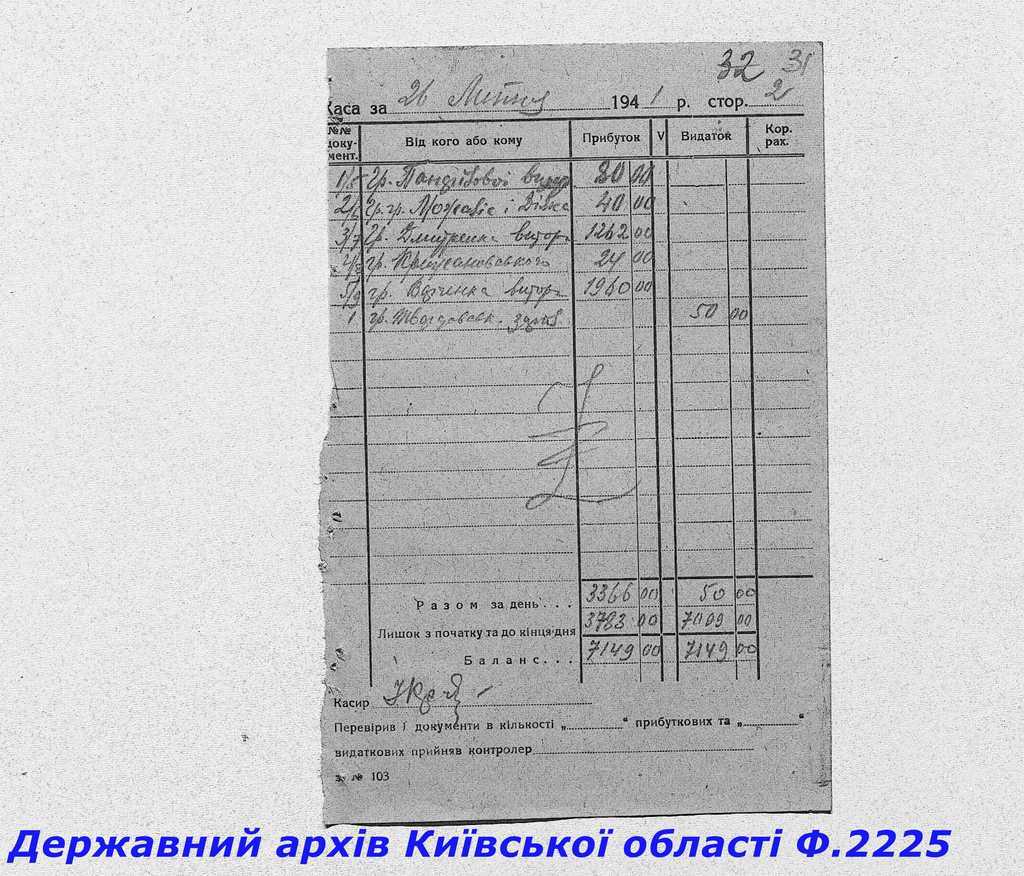 32 31
Каса за 26 Лютня 1941 р. стор. 2
№№ доку-мент. Від кого або кому Прибуток V Видаток Кор. рах.
1/5 гр. 80 00
2/6 гр. гр. і 40 00
3/7 гр. Дмитренка витор. 1262 00
4/8 гр. Крижановського 24 00
5/9 гр. витор. 1960 00
1 гр. 50 00
Разом за день... 3366 00 50 00
Лишок з початку та до кінця дня 3783 00 7099 00
Баланс... 7149 00 7149 00
Касир
Перевірив і документи в кількості „ “ прибуткових та „ “
видаткових прийняв контролер
№ 103
Державний архів Київської області Ф.2225